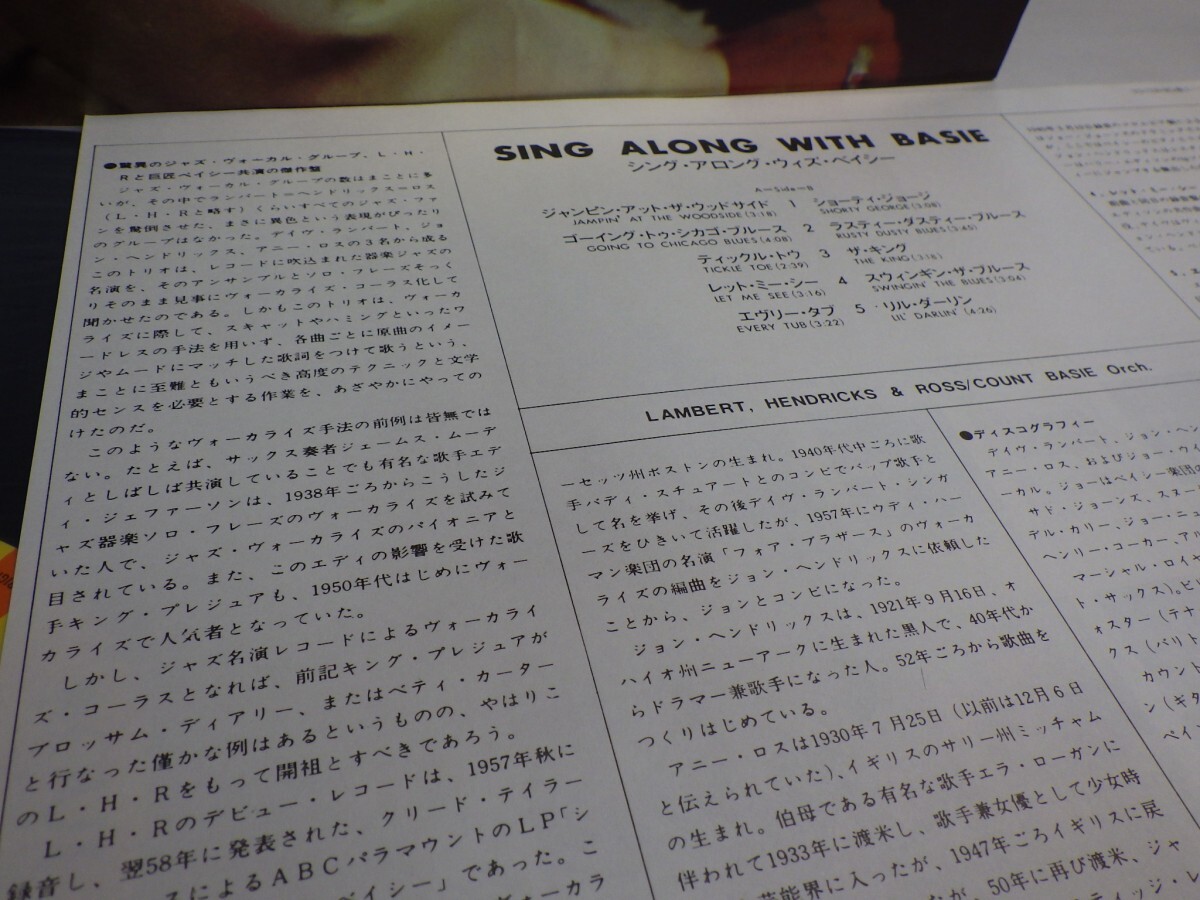 SING ALONG WITH BASIE
シング・アロング・ウィズ・ベイシー
A—Side—B
ジャンピン・アット・ザ・ウッドサイド 1 ショーティ・ジョージ
JAMPIN' AT THE WOODSIDE (3:18) SHORTY GEORGE (3:08)
ゴーイング・トゥ・シカゴ・ブルース 2 ラスティー・ダスティー・ブルース
GOING TO CHICAGO BLUES (4:08) RUSTY DUSTY BLUES (3:45)
ティックル・トウ 3 ザ・キング
TICKLE TOE (2:39) THE KING (3:18)
レット・ミー・シー 4 スウィンギン・ザ・ブルース
LET ME SEE (3:16) SWINGIN' THE BLUES (3:04)
エヴリー・タブ 5 リル・ダーリン
EVERY TUB (3:22) LIL' DARLIN' (4:26)
LAMBERT, HENDRICKS & ROSS/COUNT BASIE Orch.
●驚異のジャズ・ヴォーカル・グループ、L・H・
Rと巨匠ベイシー共演の傑作盤
ジャズ・ヴォーカル・グループの数はまことに多
いが、その中でランバート=ヘンドリックス=ロス
(L・H・Rと略す)くらいすべてのジャズ・ファ
ンを驚倒させた、まさに異色という表現がぴったり
のグループはなかった。デイヴ・ランバート、ジョ
ン・ヘンドリックス、アニー・ロスの3名から成る
このトリオは、レコードに吹込まれた器楽ジャズの
名演を、そのアンサンブルとソロ・フレーズそっく
りそのまま見事にヴォーカライズ・コーラス化して
聞かせたのである。しかもこのトリオは、ヴォーカ
ライズに際して、スキャットやハミングといったワ
ードレスの手法を用いず、各曲ごとに原曲のイメー
ジやムードにマッチした歌詞をつけて歌うという、
まことに至難ともいうべき高度のテクニックと文学
的センスを必要とする作業を、あざやかにやっての
けたのだ。
このようなヴォーカライズ手法の前例は皆無では
ない。たとえば、サックス奏者ジェームス・ムーデ
ィとしばしば共演していることでも有名な歌手エデ
ィ・ジェファーソンは、1938年ごろからこうしたジ
ャズ器楽ソロ・フレーズのヴォーカライズを試みて
いた人で、ジャズ・ヴォーカライズのパイオニアと
目されている。また、このエディの影響を受けた歌
手キング・プレジュアも、1950年代はじめにヴォー
カライズで人気者となっていた。
しかし、ジャズ名演レコードによるヴォーカライ
ズ・コーラスとなれば、前記キング・プレジュアが
ブロッサム・ディアリー、またはベティ・カーター
と行なった僅かな例はあるというものの、やはりこ
のL・H・Rをもって開祖とすべきであろう。
L・H・Rのデビュー・レコードは、1957年秋に
録音し、翌58年に発表された、クリード・テイラー
スによるABCパラマウントのLP「シ
ベイシー」であった。こ
ヴォーカラ
ーセッツ州ボストンの生まれ。1940年代中ごろに歌
手バディ・スチュアートとのコンビでバップ歌手と
して名を挙げ、その後デイヴ・ランバート・シンガ
ーズをひきいて活躍したが、1957年にウディ・ハー
マン楽団の名演「フォア・ブラザース」のヴォーカ
ライズの編曲をジョン・ヘンドリックスに依頼した
ことから、ジョンとコンビになった。
ジョン・ヘンドリックスは、1921年9月16日、オ
ハイオ州ニューアークに生まれた黒人で、40年代か
らドラマー兼歌手になった人。52年ごろから歌曲を
つくりはじめている。
アニー・ロスは1930年7月25日(以前は12月6日
と伝えられていた)、イギリスのサリー州ミッチャム
の生まれ。伯母である有名な歌手エラ・ローガンに
伴われて1933年に渡米し、歌手兼女優として少女時
芸能界に入ったが、1947年ごろイギリスに戻
が、50年に再び渡米、ジャ
ティッジ・レ
●ディスコグラフィー
デイヴ・ランバート、ジョン・ヘン
アニー・ロス、およびジョー・ウィ
ーカル。ジョーはベイシー楽団の
サド・ジョーンズ、スヌー
デル・カリー、ジョー・ニュ
ヘンリー・コーカー、アル
マーシャル・ロイ
ト・サックス)。ビ
ォスター(テナ
クス(バリト
カウン
ン(ギタ
ベイ